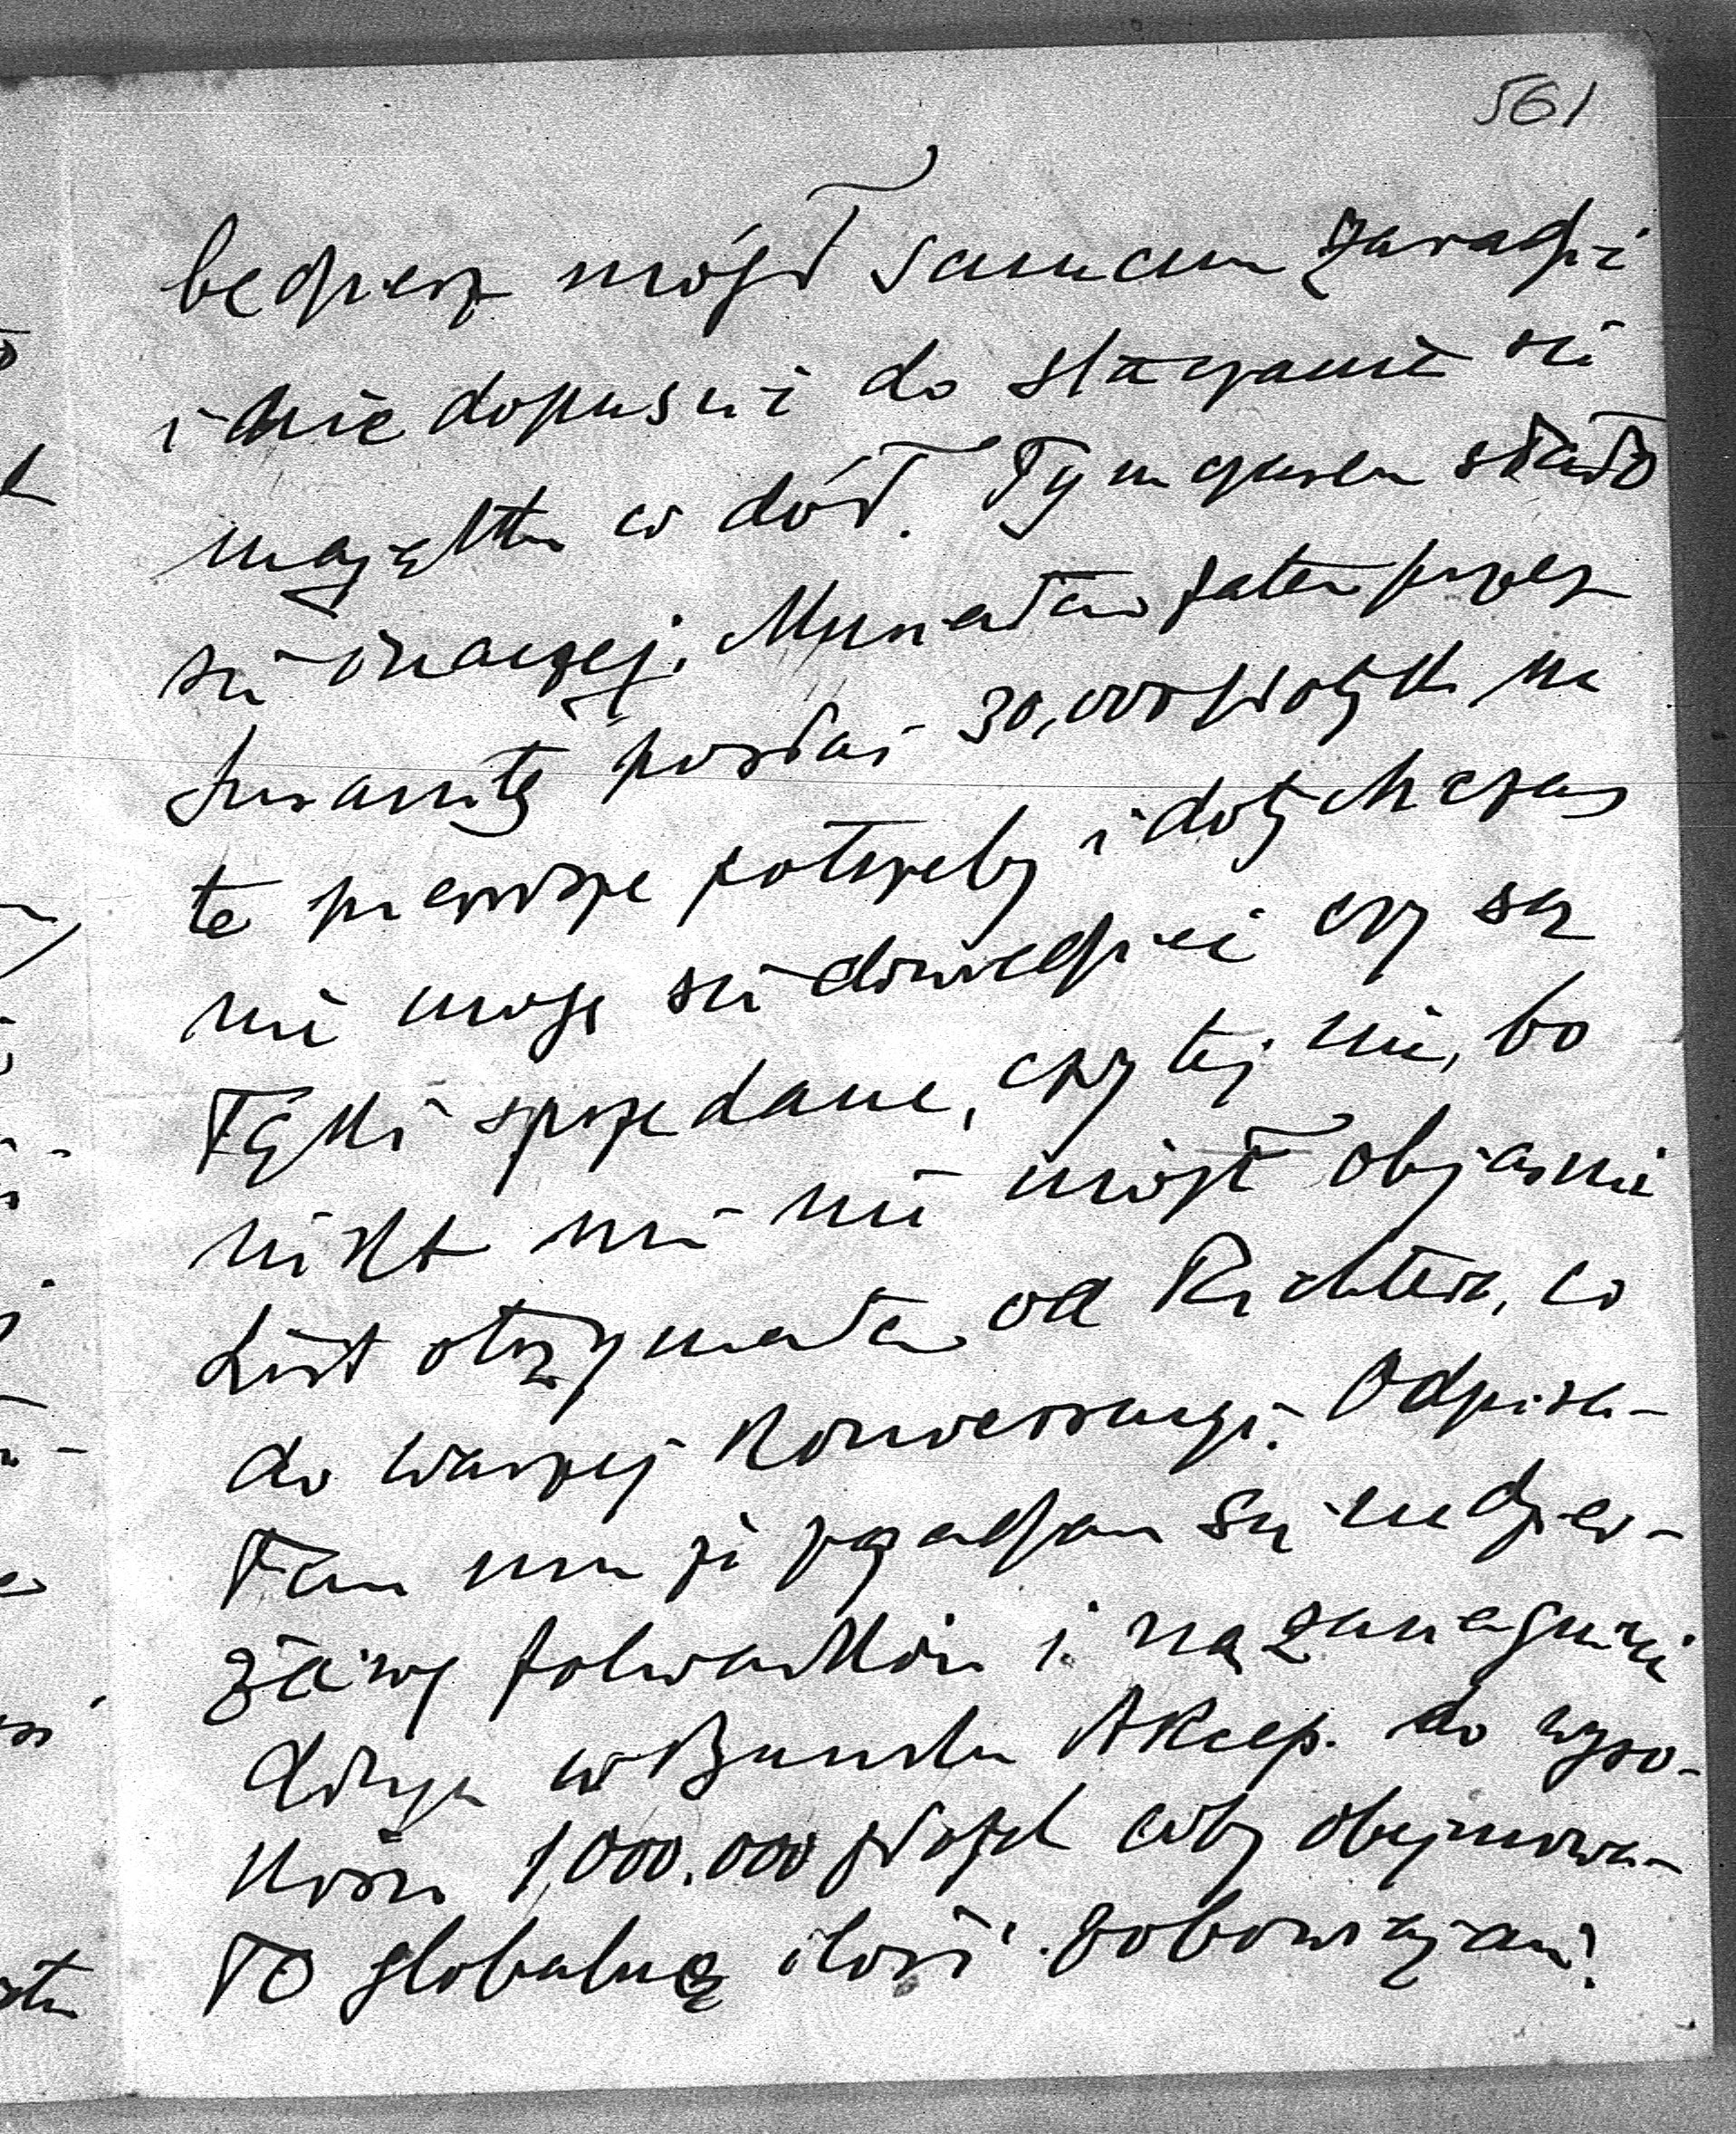 561
będziesz mógł samem zaradzić
i nie dopuścić do staczania się
majątku w dół. Tymczasem stało
się inaczej. Musiałam zatem przez
posłać 30,000 złotych na
te pierwsze potrzeby i dotychczas
nie mogę się dowiedzieć czy są
łąki sprzedane, czy też nie, bo
nikt mi nie mógł objaśnić
List otrzymałam od Richtera, co
do waszej konwersacyi. Odpisa-
łam mu że zgadzam się na dzier-
żawy folwarków i na zaciągnięcie
długu w Banku Akcep. do wyso-
kości 1,000.000 złotych coby obejmowa-
ło globalną ilość zobowiązań.